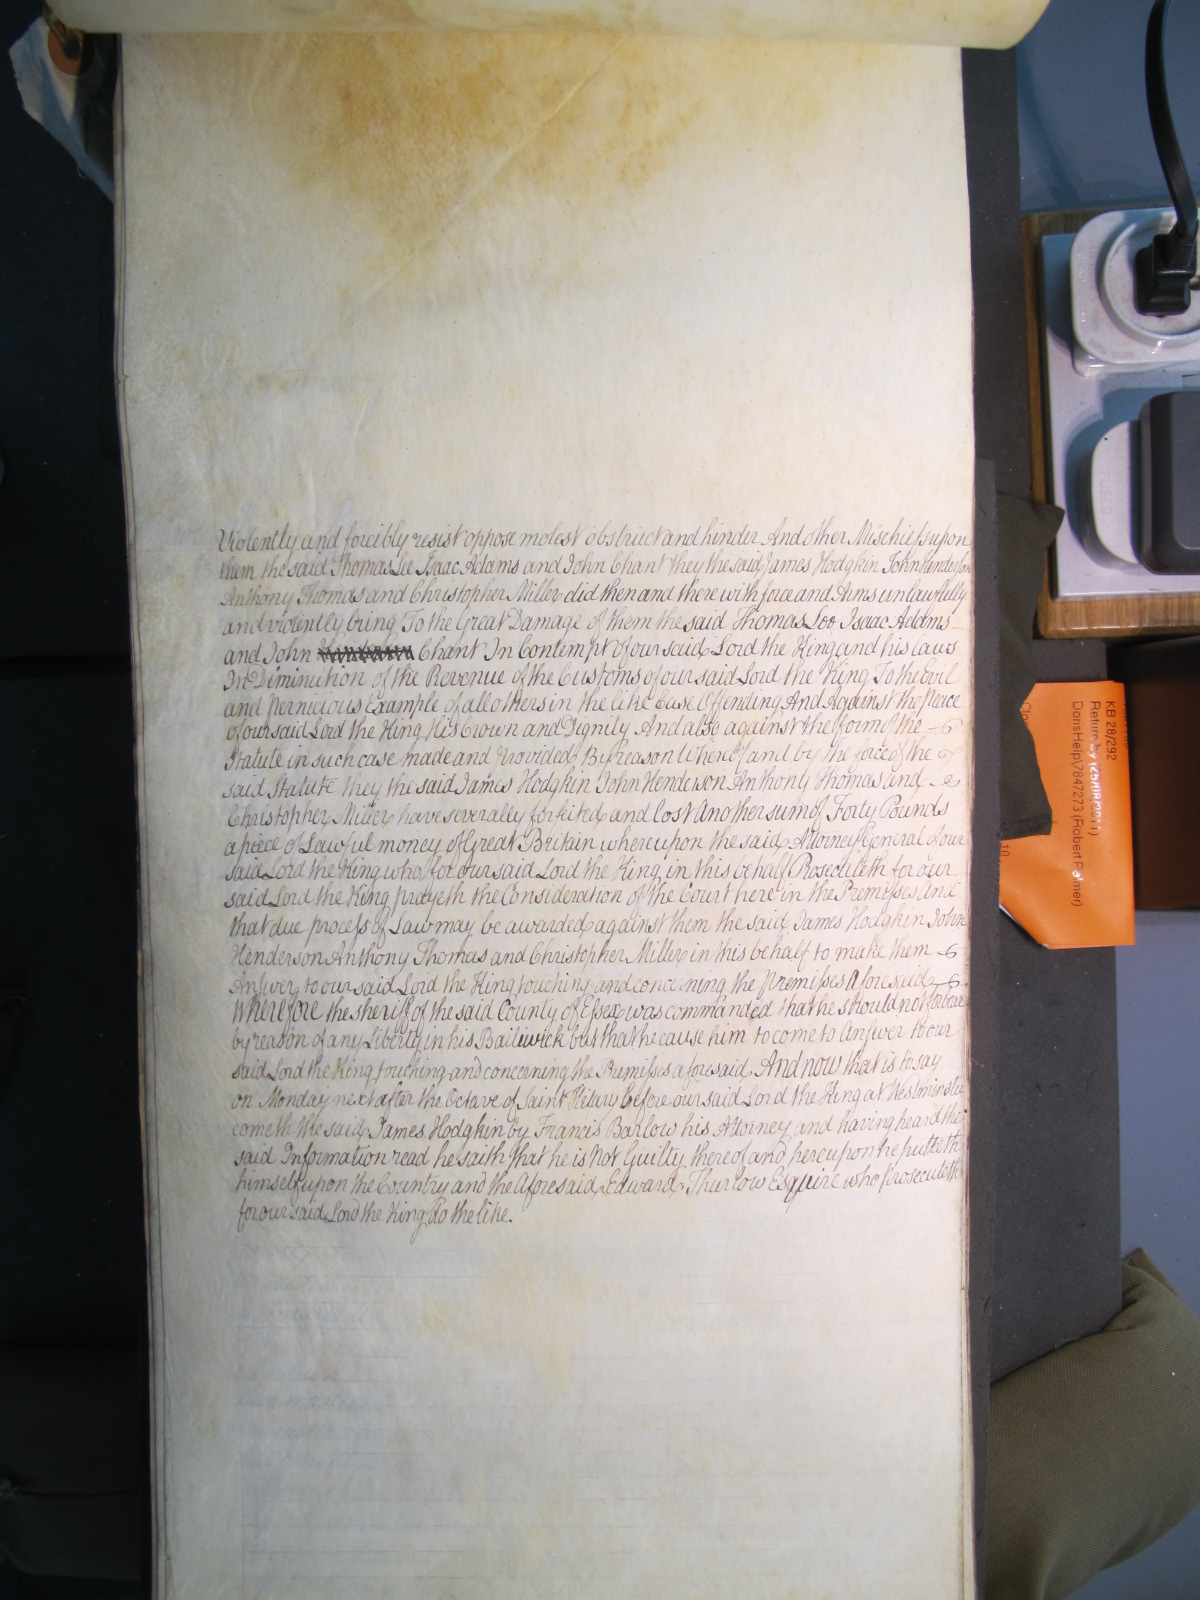 Violently and forcibly resist oppose molest obstruct and hinder And other Mischiefs upon
them the said Thomas Lee Isaac Adams and John Chant they the said James Hodgkin John Henderson
Anthony Thomas and Christopher Miller did then and there with force and Arms unlawfully
and violently bring To the Great Damage of them the said Thomas Lee Isaac Adams
and John Chant In Contempt of our said Lord the King and his laws
In Diminution of the Revenue of the Customs of our said Lord the King To the Evil
and pernicious Example of all others in the like case Offending And Against the Peace
of our said Lord the King His Crown and Dignity And also against the form of the
Statute in such case made and Provided By reason whereof and by the force of the
said Statute they the said James Hodgkin John Henderson Anthony Thomas and
Christopher Miller have severally forfeited and lost Another sum of Forty Pounds
a piece of Lawful money of Great Britain whereupon the said Attorney General of our
said Lord the King who for our said Lord the King in this behalf Prosecuteth for our
said Lord the King prayeth the Consideration of the Court here in the Premisses And
that due process of Law may be awarded against them the said James Hodgkin John
Henderson Anthony Thomas and Christopher Miller in this behalf to make them
Answer to our said Lord the King touching and concerning the Premisses aforesaid
Wherefore the sheriff of the said County of Essex was commanded that he should not forbear
by reason of any Liberty in his Bailiwick but that he cause him to come to Answer to our
said Lord the King touching and concerning the Premisses aforesaid And now that is to say
on Monday next after the Octave of Saint Hilary before our said Lord the King at Westminster
cometh the said James Hodgkin by Francis Barlow his Attorney and having heard the
said Information read he saith that he is Not Guilty thereof and hereupon he putteth
himself upon the Country and the Aforesaid Edward Thurlow Esquire who Prosecuteth
for our said Lord the King do the like.
KB 28/292
Return by
DorisHelp\7847273 (Robert Palmer)